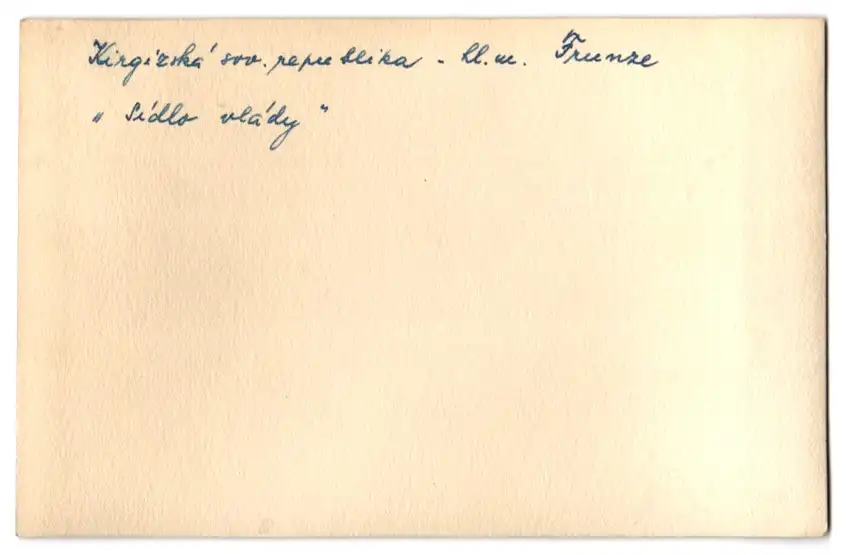 Kirgizská sov. republika - hl. m. Frunze
„ Sídlo vlády "